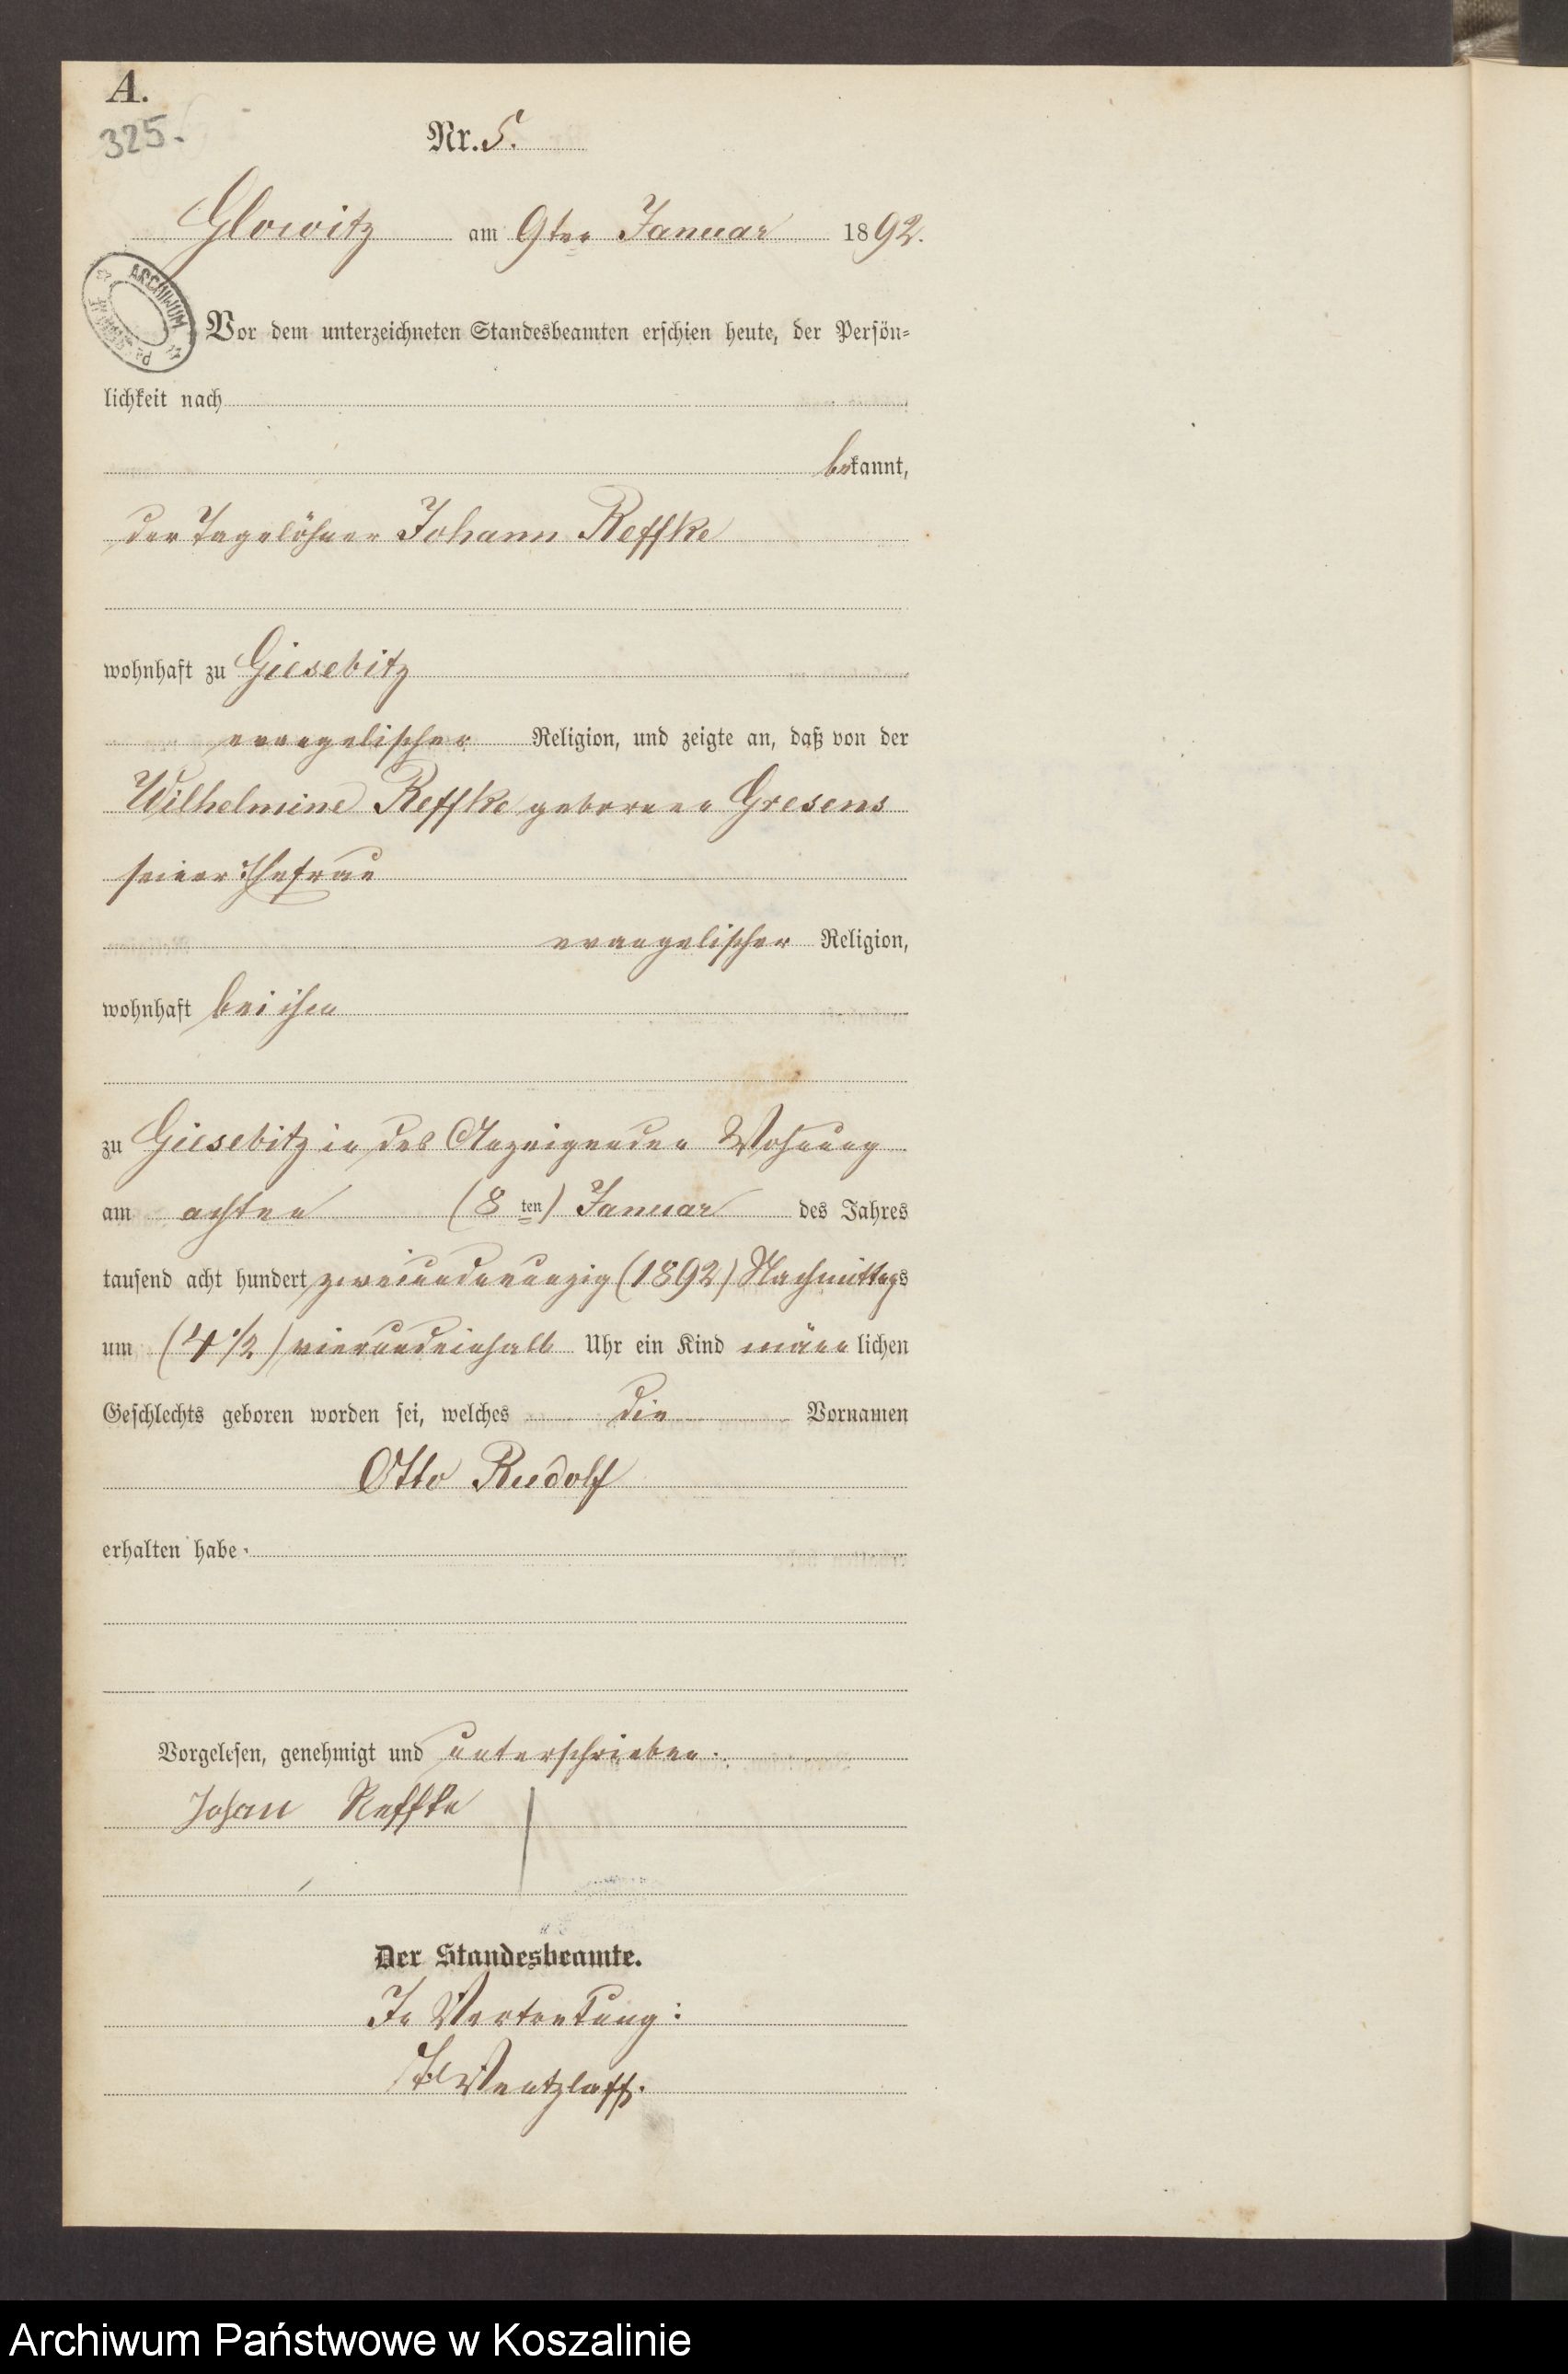 A.
325.
Nr. 5.
Glowitz am 9ten Januar 1892.
ARCHIWUM
Vor dem unterzeichneten Standesbeamten erschien heute, der Persön=
lichkeit nach
bekannt,
der Tagelöhner Johann Reffke
wohnhaft zu Giesebitz
evangelischer Religion, und zeigte an, daß von der
Wilhelmine Reffke geborenen Gresens
seiner Ehefrau
evangelischer Religion,
wohnhaft bei ihm
zu Giesebitz in des Anzeigenden Wohnung
am achten (8 ten) Januar des Jahres
tausend acht hundert zweiundneunzig (1892) Nachmittags
um (4 1/2) vierundeinhalb Uhr ein Kind männlichen
Geschlechts geboren worden sei, welches die Vornamen
Otto Rudolf
erhalten habe.
Vorgelesen, genehmigt und unterschrieben.
Johan Reffke
Der Standesbeamte.
In Vertretung:
Wentzlaff.
Archiwum Państwowe w Koszalinie